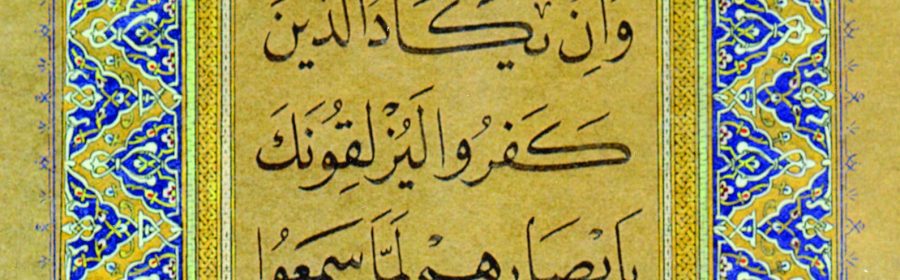 وَإِنْ يَكَادُ الَّذِينَ
كَفَرُوا لَيُزْلِقُونَكَ
بِأَبْصَارِهِمْ لَمَّا سَمِعُوا